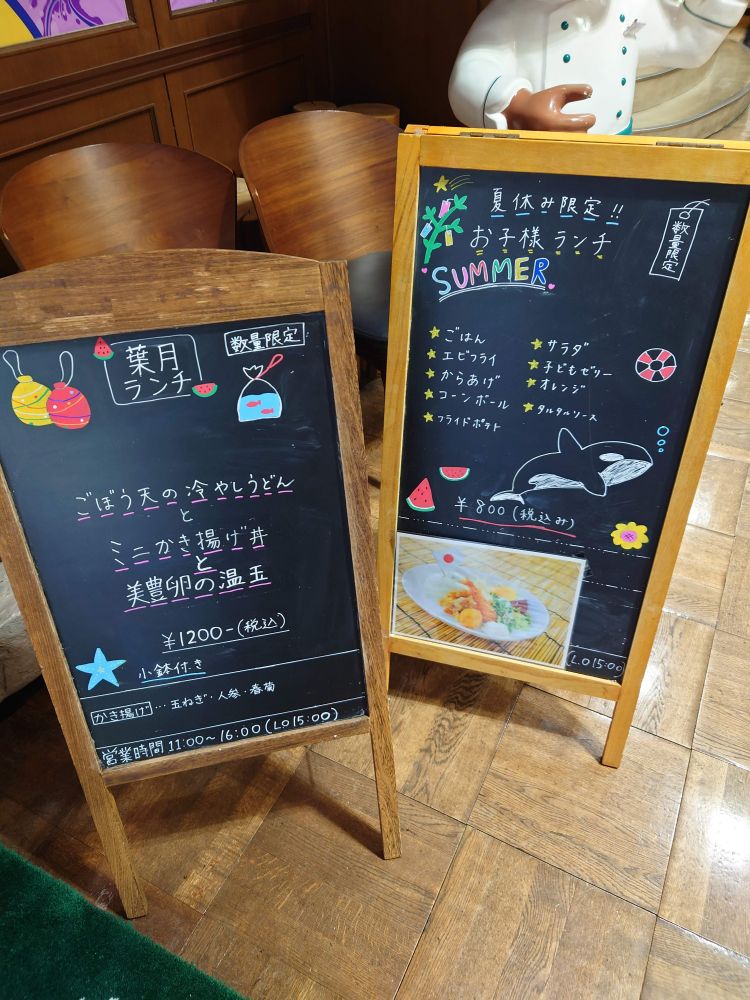 葉月
ランチ
数量限定
ごぼう天の冷やしうどん
と
ミニかき揚げ丼
と
美豊卵の温玉
¥1200-(税込)
小鉢付き
かき揚げ…玉ねぎ・人参・春菊
営業時間11:00～16:00(LO15:00)
夏休み限定!!
お子様ランチ
SUMMER
数量限定
ごはん
エビフライ
からあげ
コーンボール
フライドポテト
サラダ
子どもゼリー
オレンジ
タルタルソース
¥800(税込み)
(L.O15:00)